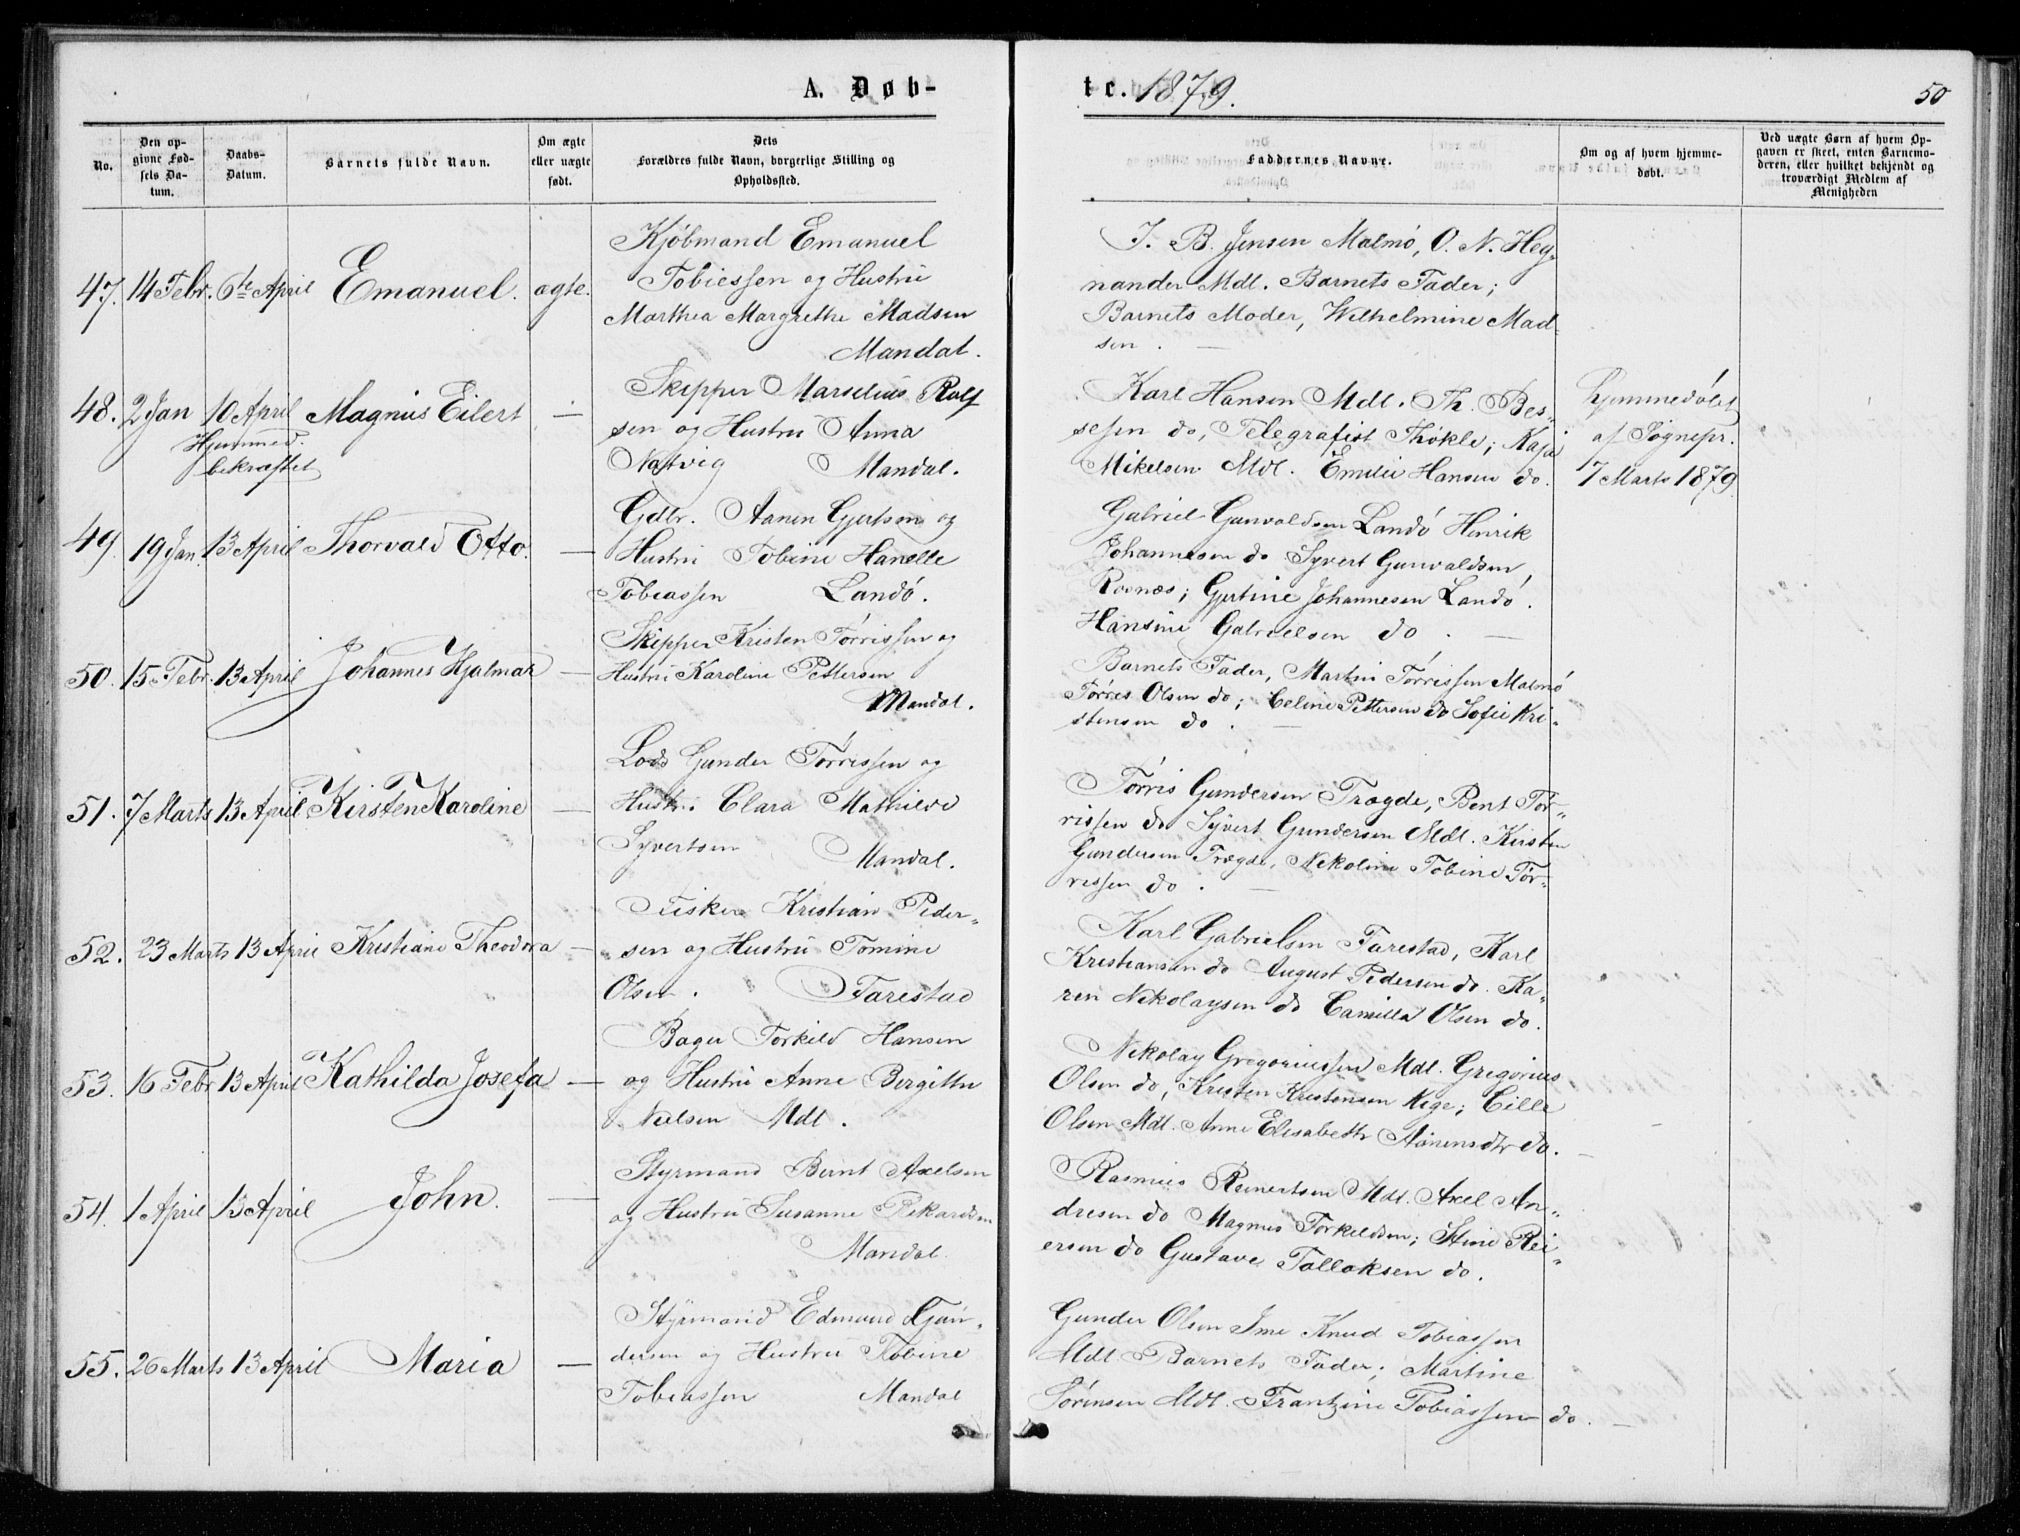 A. Døb-
te. 1879.
50
No.
Den op-
givne Fød-
sels Da-
tum.
Daabs-
Datum.
Barnets fulde Navn.
Om ægte
eller uægte
født.
Dets
Forældres fulde Navn, borgerlige Stilling og
Opholdssted.
Faddernes Navne.
Om og af hvem hjemme-
døbt.
Ved uægte Børn af hvem Op-
gaven er skeet, enten Barnemo-
deren, eller hvilket bekjendt og
troværdigt Medlem af
Menigheden
47. 14 Febr. 6te April Emanuel. ægte.
Kjöbmand Emanuel
Tobiessen og Hustru
Marthea Margrethe Madsen
Mandal.
J. B. Jensen Malmö, O. N. Heg-
nander Mdl. Barnets Fader;
Barnets Moder, Wilhelmine Mad
sen. —
48. 2 Jan 10 April Magnus Eilert —
Hjemmed.
bekræftet
Skipper Marselius Rolf
sen og Hustru Anna
Natvig Mandal.
Karl Hansen Mdl. Th. Bes-
sesen do, Telegrafist Thökle; Kaja
Mikelsen Mdl. Emilie Hansen do.
Hjemmedöbt
af Sognepr.
7 Marts 1879
49. 19 Jan. 13 April Thorvald Otto. —
Gdbr. Aanen Gjertsen og
Hustru Tobine Hanelle
Tobiassen Landö.
Gabriel Gunvaldsen Landö Henrik
Johannesen do Syvert Gunvaldsen,
Rosnæs; Gjertine Johannesen Landö.
Hansine Gabrielsen do. —
50. 15 Febr. 13 April Johannes Hjalmar —
Skipper Kristen Törrissen og
Hustru Karoline Pettersen
Mandal.
Barnets Fader, Martin Törrissen Malmö
Törres Olsen do; Celine Pettersen do Sofie Kri-
stensen do. —
51. 7 Marts 13 April Kirsten Karoline —
Lods Gunder Törrissen og
Hustru Clara Mathilde
Syvertsen Mandal.
Törris Gundersen Trægde, Bent Tör-
rissen do Syvert Gundersen Mdl. Kirsten
Gundersen Trægde, Nekoline Tobine Tör-
rissen do. —
52. 23 Marts 13 April Kristiane Theodora —
Fisker Kristian Peder-
sen og Hustru Tomine
Olsen. Farestad
Karl Gabrielsen Farestad, Karl
Kristiansen do August Pedersen do. Ka-
ren Nekolaysen do Camilla Olsen do.
53. 16 Febr 13 April Kathilda Josefa —
Bager Torkild Hansen
og Hustru Anne Bergitte
Nielsen Mdl.
Nekolay Gregoriussen Mdl. Gregorius
Olsen do, Kristen Kristensen Kige; Cille
Olsen Mdl. Anne Elisabeth Aanensdtr do. —
54. 1 April 13 April John. —
Styrmand Bernt Axelsen
og Hustru Susanne Rikardsen
Mandal
Rasmus Reinertsen Mdl. Axel An-
dresen do Magnus Torkeldsen; Stine Rei-
ersen do Gustave Tallaksen do.
55. 26 Marts 13 April Maria —
Styrmand Edmund Gun-
dersen og Hustru Tobine
Tobiassen Mandal
Gunder Olsen Ime Knud Tobiassen
Mdl Barnets Fader; Martine
Sörensen Mdl. Frantzine Tobiassen do. —